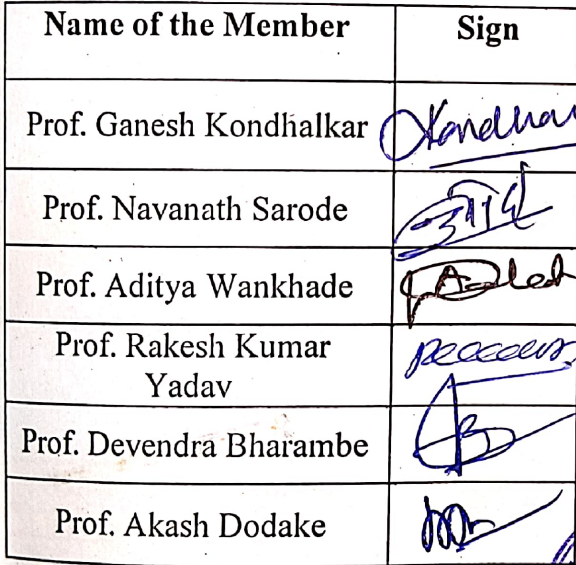 Name of the Member Sign
Prof. Ganesh Kondhalkar
Prof. Navanath Sarode
Prof. Aditya Wankhade
Prof. Rakesh Kumar
Yadav
Prof. Devendra Bharambe
Prof. Akash Dodake